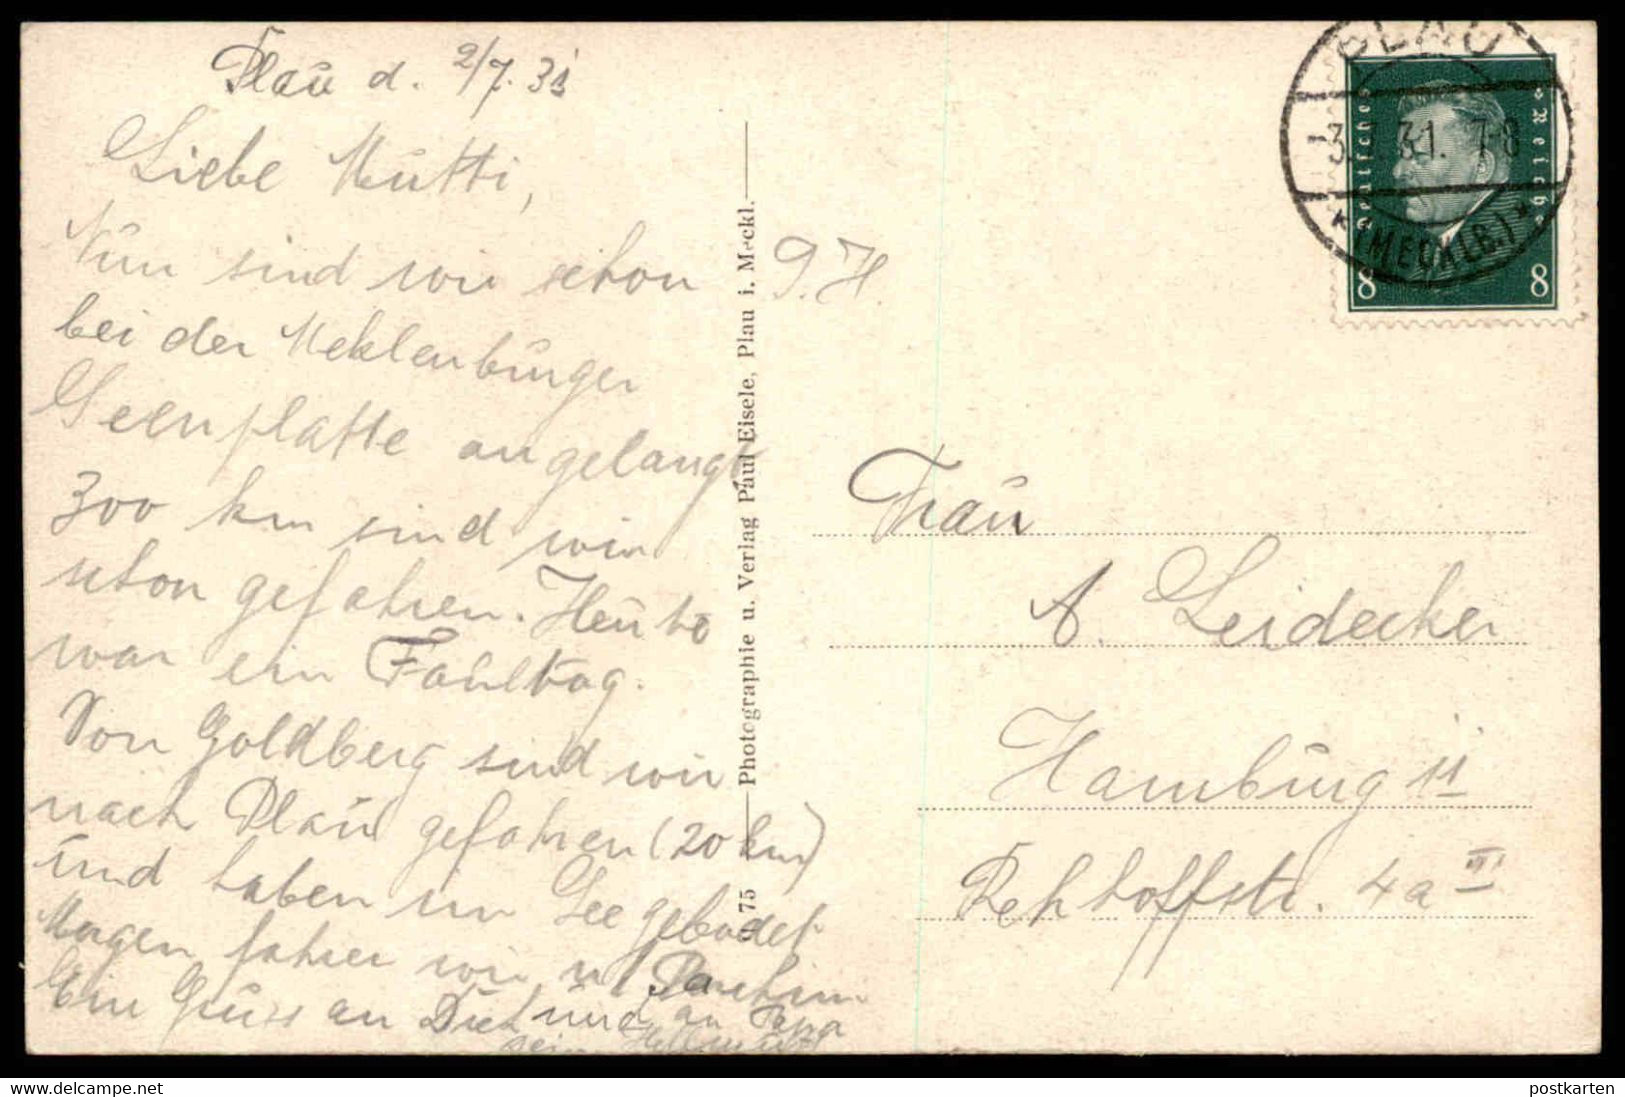 Plau d. 2/7. 31
Liebe Mutti,
Nun sind wir schon
bei der Meklenburger
Seenplatte angelangt
300 km sind wir
schon gefahren. Heute
war ein Faultag.
Von Goldberg sind wir
nach Plau gefahren (20 km)
und haben im See gebadet.
Morgen fahren wir n. Parchim.
Ein Gruss an Dich und an Papa
Hellmuth
G. H.
75 Photographie u. Verlag Paul Eisele, Plau i. Meckl.
PLAU
-3.7.31. 7-8
*(MECKLB.)*
Deutsches Reich
8 8
Frau
A. Leidecker
Hamburg 11
Rehhoffstr. 4a III
delcampe.net
postkarten